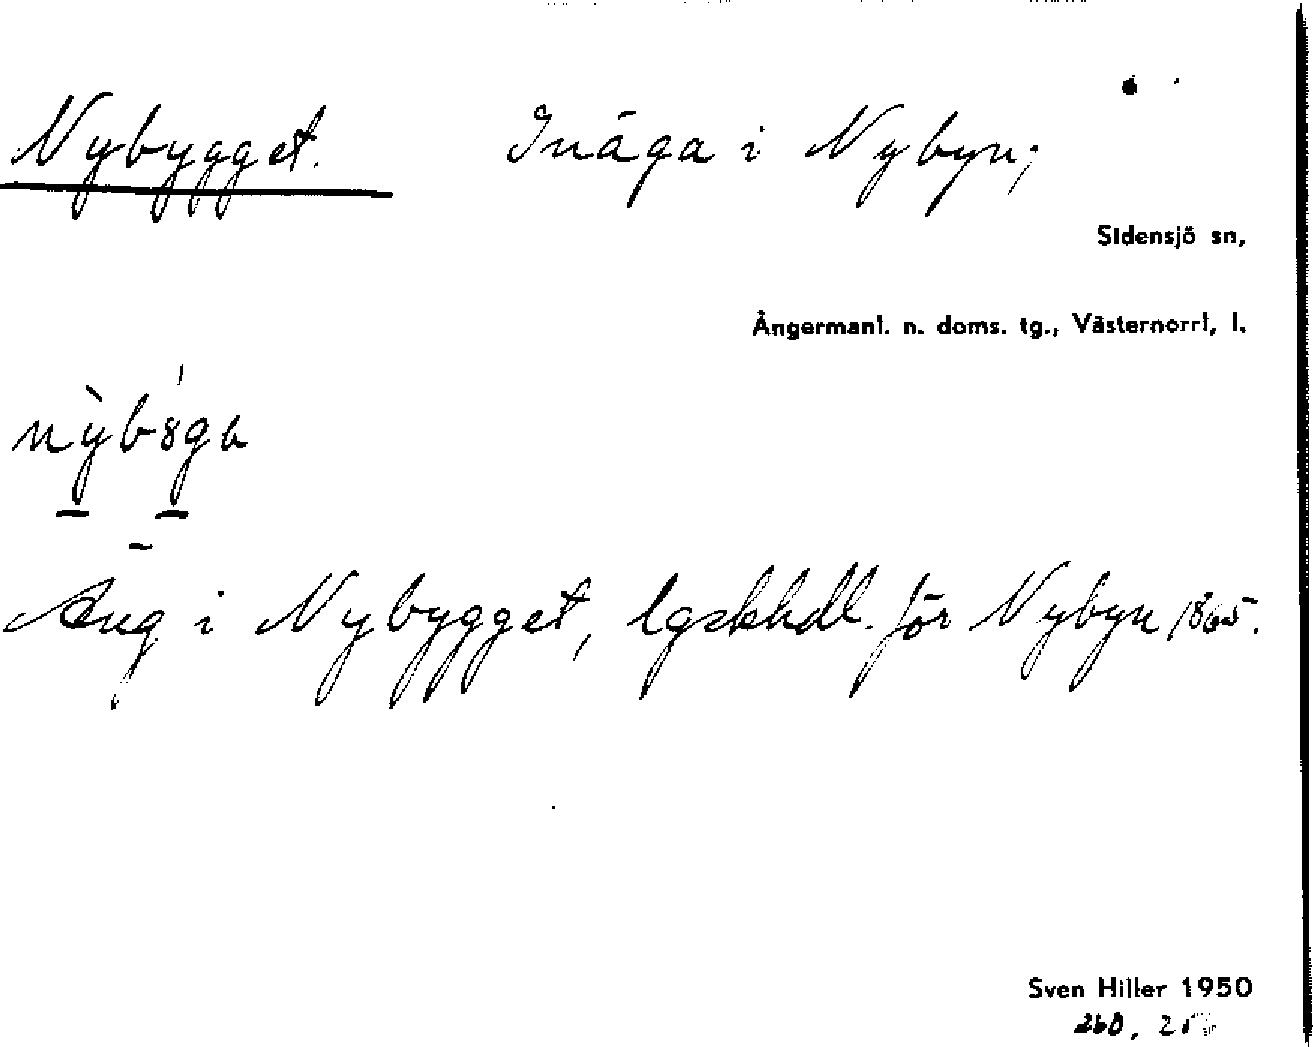 Nybygget. Inäga i Nybyn;
Sidensjö sn,
Ångermanl. n. doms. tg., Västernorrl. l.
Äng i Nybygget, lgskhdl. för Nybyn 1865.
Sven Hiller 1950
260,